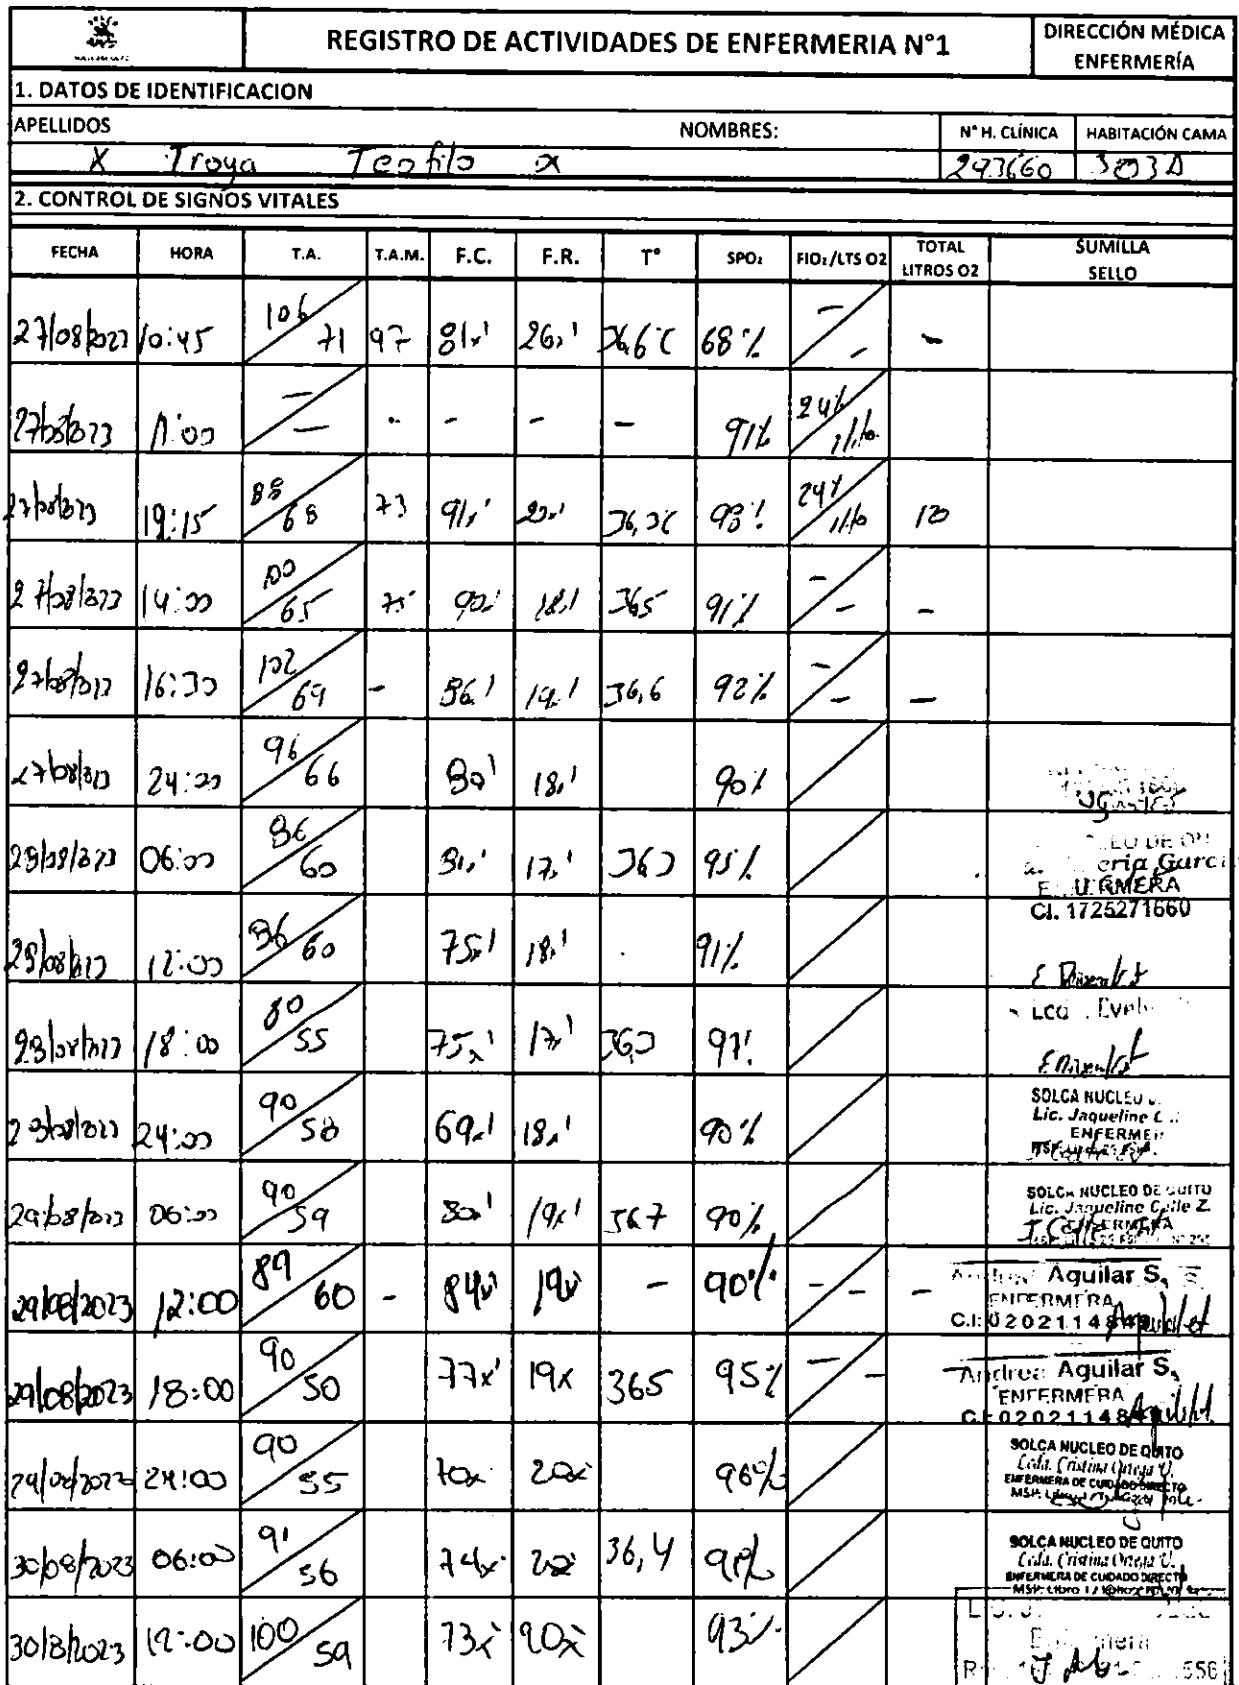 REGISTRO DE ACTIVIDADES DE ENFERMERIA N°1
DIRECCIÓN MÉDICA
ENFERMERÍA
1. DATOS DE IDENTIFICACION
APELLIDOS NOMBRES: N° H. CLÍNICA HABITACIÓN CAMA
X Troya Teofilo x 293660 303A
2. CONTROL DE SIGNOS VITALES
FECHA HORA T.A. T.A.M. F.C. F.R. T° SPO₂ FIO₂/LTS O2 TOTAL LITROS O2 SUMILLA SELLO
27/08/2023 10:45 106/71 97 81x' 26x' 36,6°C 68% -/- -
27/08/2023 11:00 -/- - - - - 91% 24%
27/08/2023 19:15 88/68 73 91x' 20x' 98% 24% 120
27/08/2023 14:00 100/65 75 90x' 18x' 365 91% -/- -
27/08/2023 16:30 102/69 - 86x' 19x' 36,6 92% -/- -
27/08/2023 24:00 96/66 80x' 18x' 90%
28/08/2023 06:00 86/60 81x' 17x' 360 95%
Garci
CI. 1725271660
28/08/2023 12:00 86/60 75x' 18x' 91%
28/08/2023 18:00 80/55 75x' 17x' 360 91%
28/08/2023 24:00 90/58 69x' 18x' 90%
SOLCA NUCLEO
Lic. Jaqueline
29/08/2023 06:00 90/59 80x' 19x' 367 90%
SOLCA NUCLEO DE QUITO
Lic. Jaqueline Calle Z.
ENFERMERA
29/08/2023 12:00 89/60 - 84x' 19x' - 90% -/- -
Andrea Aguilar S.
ENFERMERA
C.I: 020211484
29/08/2023 18:00 90/50 77x' 19x 365 95% -/-
Andrea Aguilar S.
ENFERMERA
C.I: 020211484
29/08/2023 24:00 90/55 70x' 20x' 96%
SOLCA NUCLEO DE QUITO
Lcda. Cristina Ortega U.
ENFERMERA DE CUIDADO DIRECTO
30/08/2023 06:00 91/56 74x' 20x' 36,4 91%
SOLCA NUCLEO DE QUITO
Lcda. Cristina Ortega U.
ENFERMERA DE CUIDADO DIRECTO
30/8/2023 12:00 100/59 73x' 20x' 93%